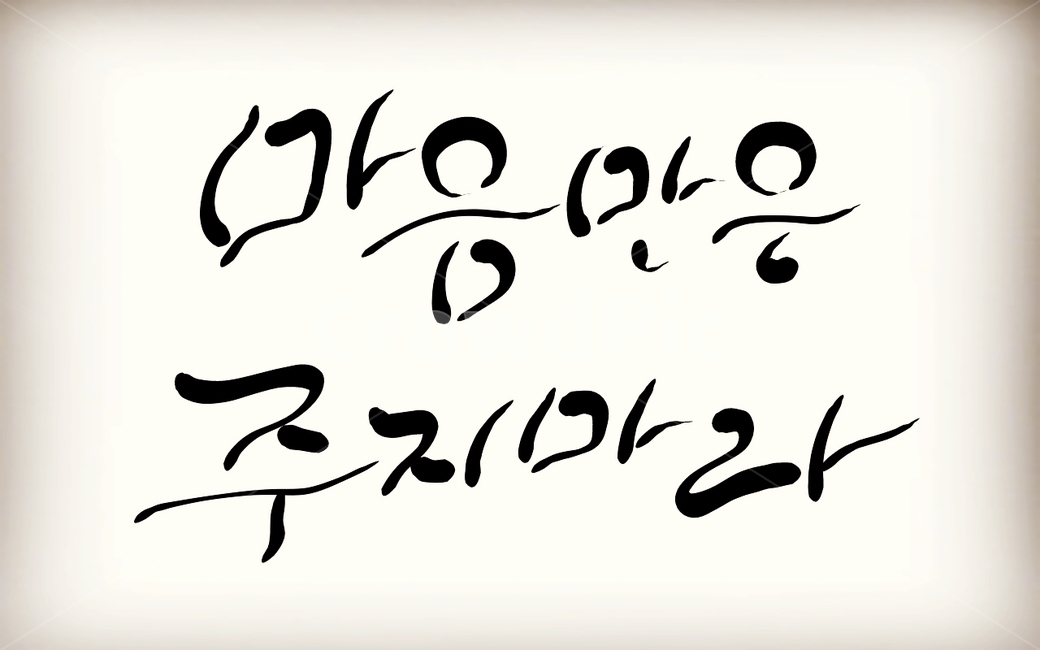 마음만은
주지마라